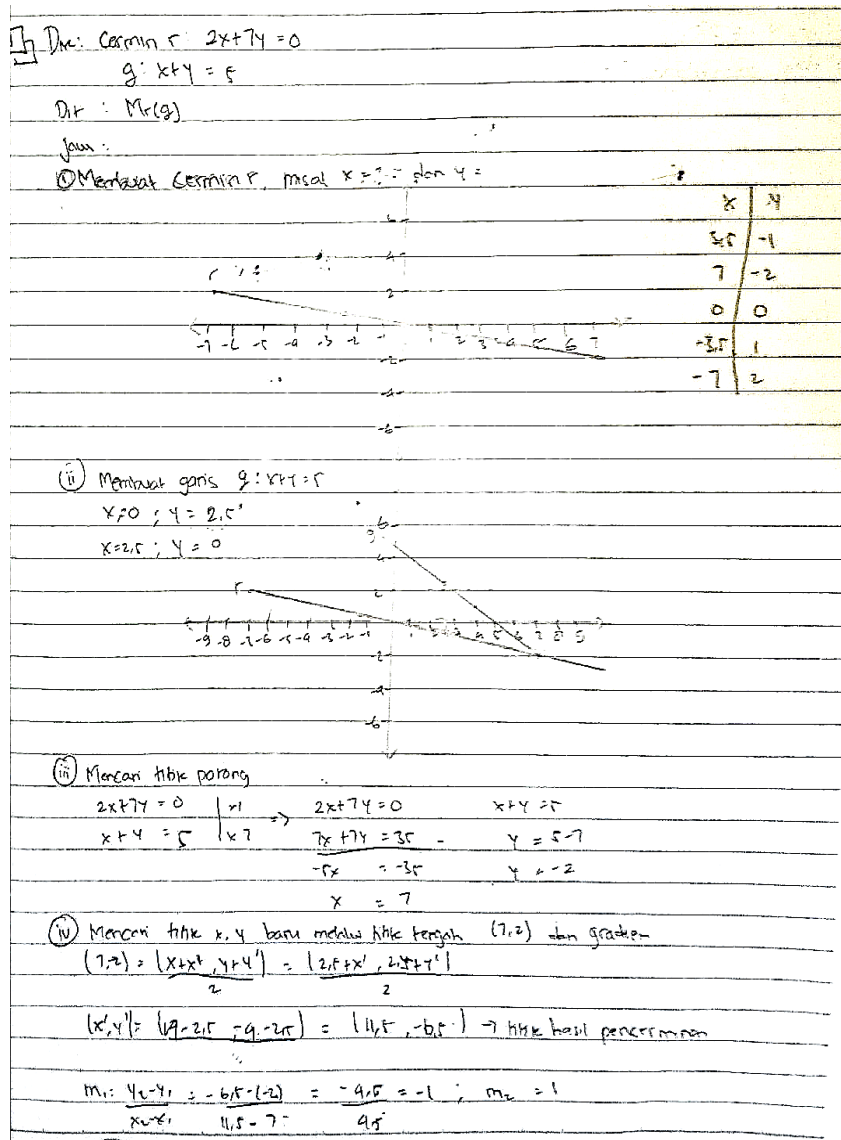 Dik: Cermin r: 2x+7y=0
g: x+y = 5
Dit : Mr(g)
Jaw :
① Membuat cermin r, misal x = dan y =
x | y
3,5 | -1
7 | -2
0 | 0
-3,5 | 1
-7 | 2
r
6
4
2
-7 -6 -5 -4 -3 -2 -1 1 2 3 4 5 6 7
-2
-4
-6
(ii) Membuat garis g: x+y=5
x=0 ; y = 2,5
x=2,5 ; y = 0
g
r
6
4
2
-9 -8 -7 -6 -5 -4 -3 -2 -1 1 2 3 4 5 6 7 8 9
-2
-4
-6
(iii) Mencari titik potong
2x+7y = 0 | x1 => 2x+7y=0 x+y=5
x+y = 5 | x7 7x+7y = 35 - y = 5-7
-5x = -35 y = -2
x = 7
(iv) Mencari titik x, y baru melalui titik tengah (7,2) dan gradien
(7,-2) = (x+x', y+y')/2 = (2,5+x', 2,5+y')/2
(x',y') = (19-2,5 , -4-2,5) = (11,5 , -6,5) → titik hasil pencerminan
m₁: y₂-y₁/x₂-x₁ = -6,5-(-2)/11,5-7 = -4,5/4,5 = -1 ; m₂ = 1